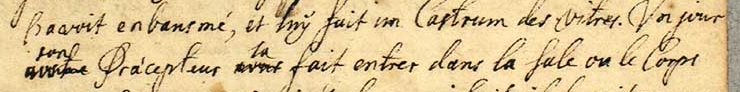 l'avoit enbausmé, et luy fait un Castrum des vitres. Un jour
son Præcepteur la fait entrer dans la sale ou le Corps